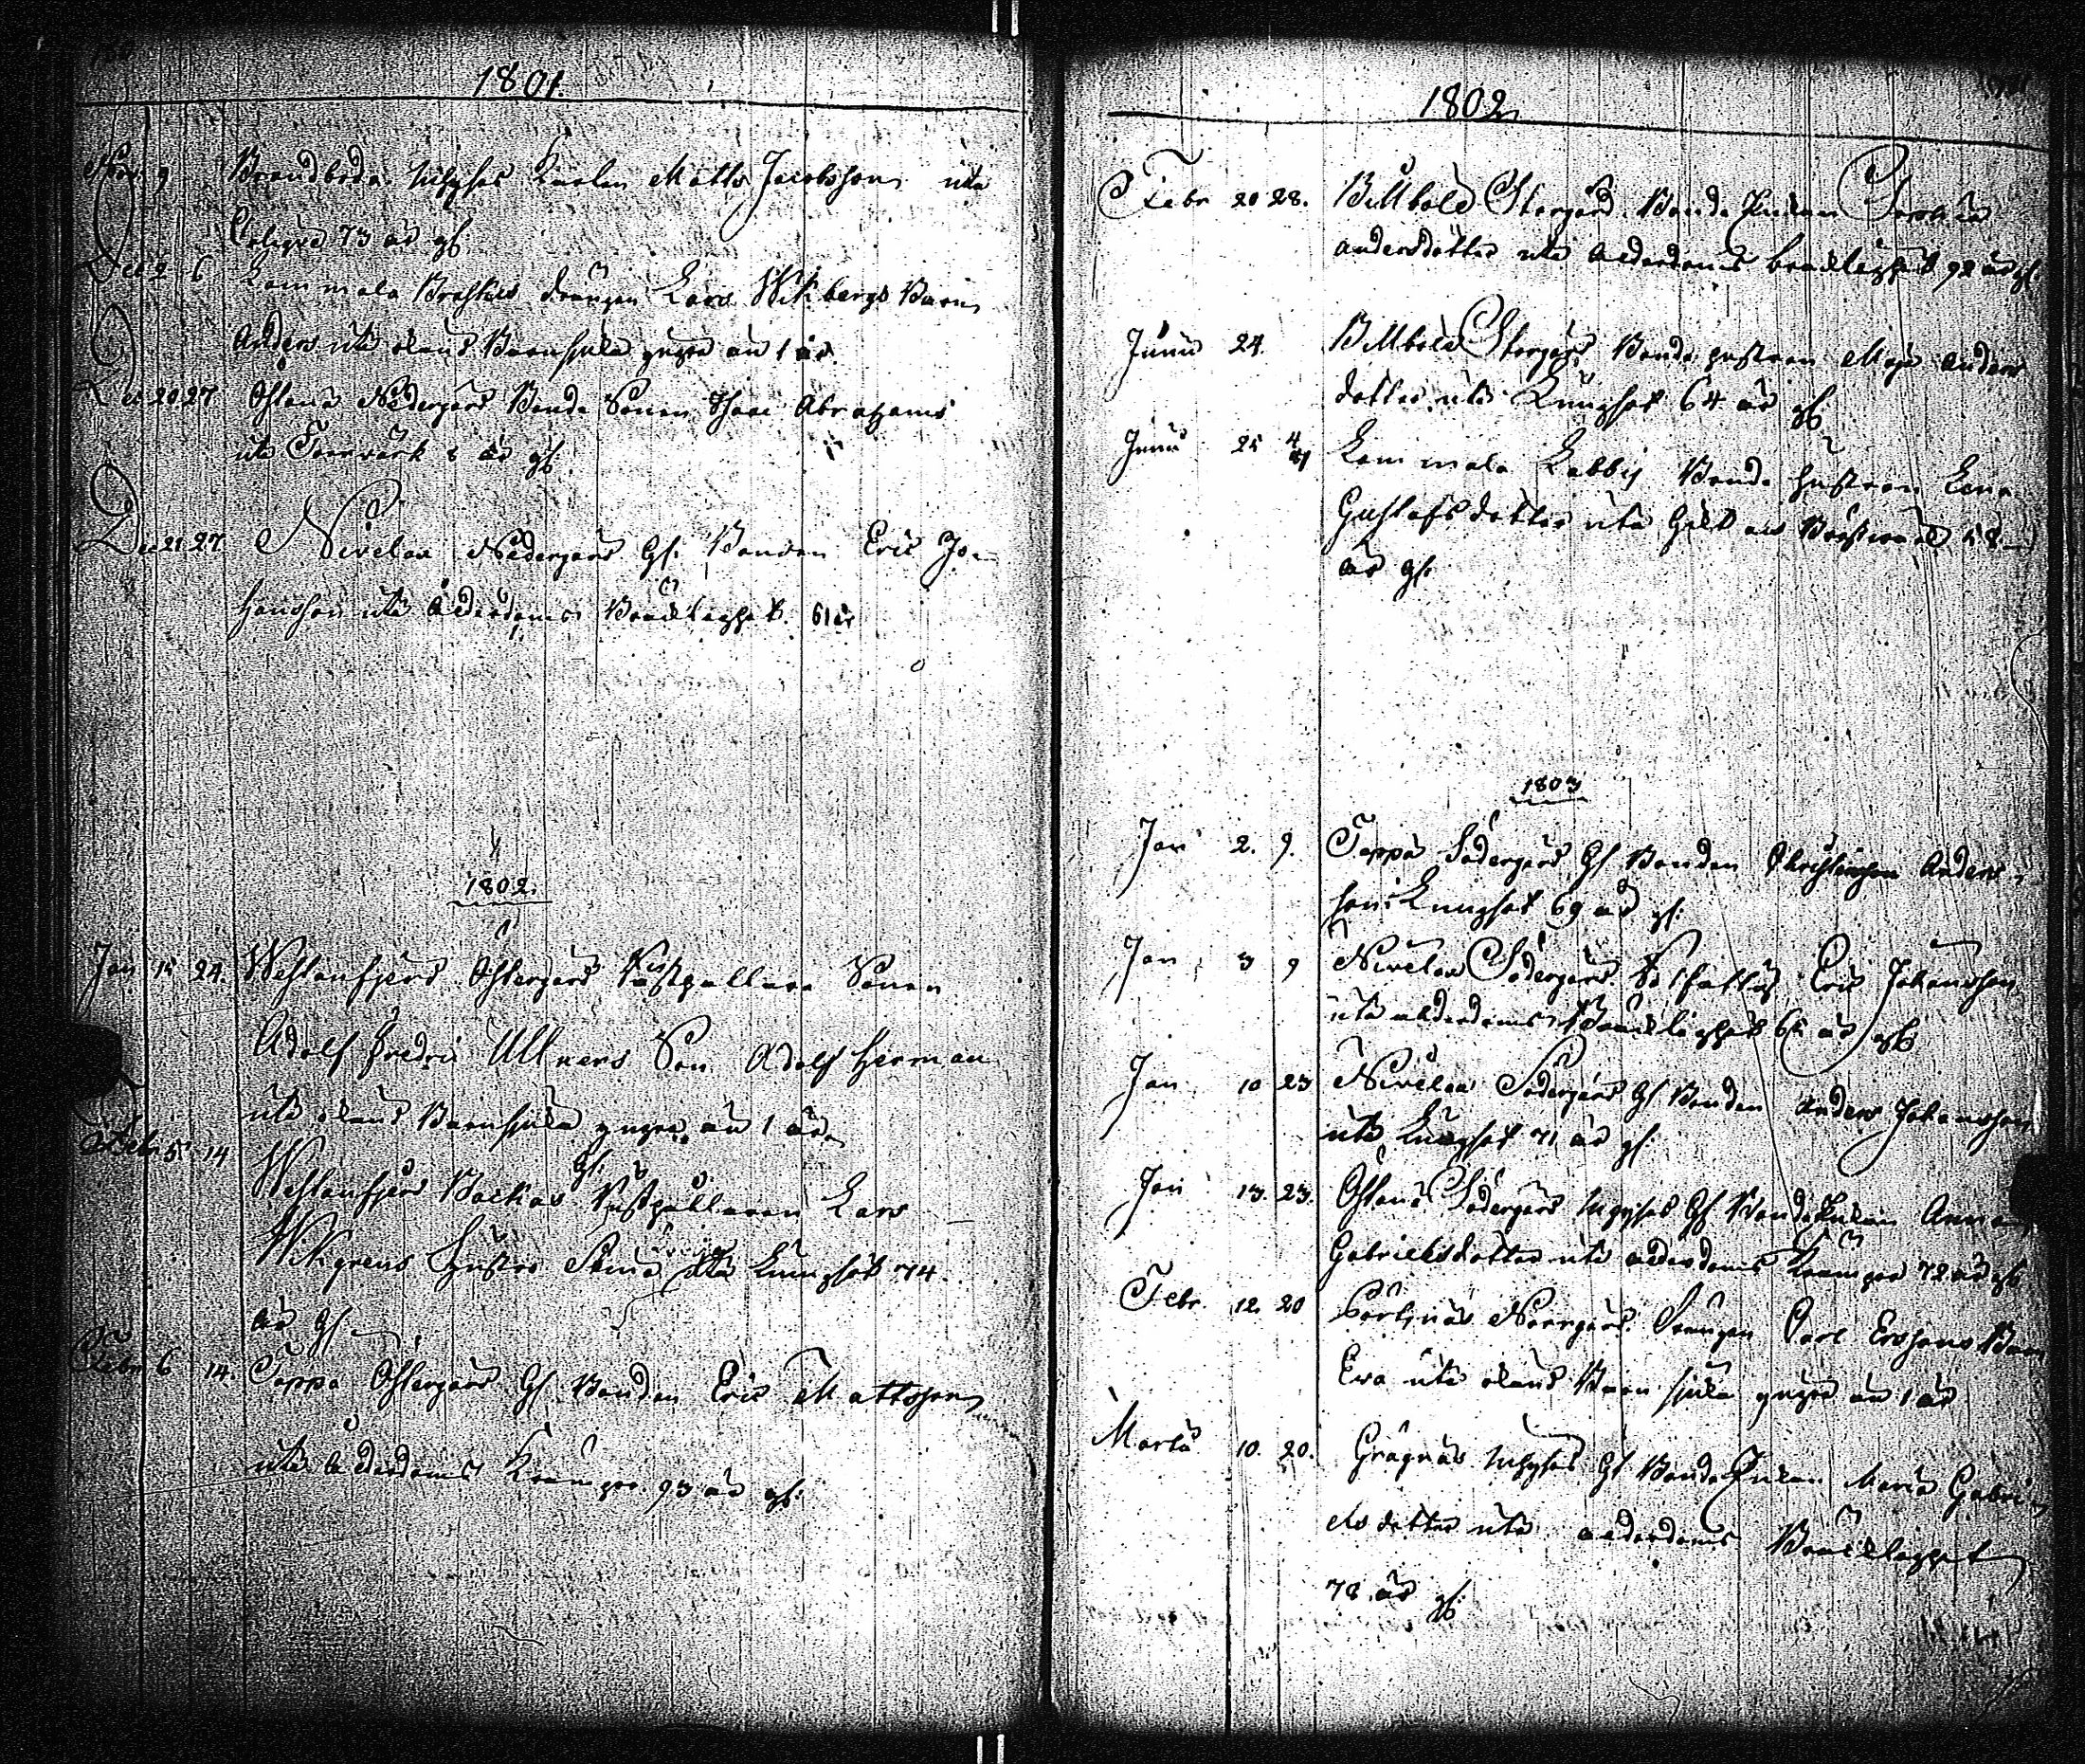 1801.
9 Brandboda Inhyses Karlen Matts Jacobsson uti
73 år gl.
Dec 2 6 Lammala Broskas drängen Lars Wikbergs Barn
Anders uti okänd Barnsjuka yngre än 1 år.
Dec 20 27 Östanå Nedergård Bonde Sonen Isaac Abrahams
uti år gl.
Dec 21 27 Nivelax Nedergård Gl. Bonden Eric Jo-
hansson uti ålderdoms Bräcklighet. 61 år
1802.
Jan 15 24 Westanfjerd Östergård Sonen
Adolf Fredric Ullners Son Adolf Herman
uti okänd Barnsjuka yngre än 1 år
Febr 5 14 Westanfjerd Backas Gl. Lars
Wikgrens Hustru uti Lungsot 74
år gl
Febr 6 14. Tappo Östergård Gl. Bonden Eric Mattsson
uti ålderdoms Krämpor 93 år gl.
1802
Febr 20 28. Billböle Storgård Bonde Enkan
Andersdotter uti ålderdoms bräcklighet 92 år gl
Junii 24. Billböle Storgård Bonde hustrun Maja Anders
dotter uti Lungsot 64 år gl.
Junii 25 Lammala Labbis Bonde hustrun Lena
Gustafsdotter uti Håll och Bröstwärk 58
år gl.
1803
Jan 2. 9. Tappo Södergård Gl Bonden Christierson Anders
son Lungsot 69 år gl.
Jan 3 9 Nivelax Södergård Eric Johansson
uti ålderdoms Bräcklighet år gl
Jan 10 23 Nivelax Södergård Gl Bonden Anders Johansson
uti Lungsot 71 år gl.
Jan 13. 23. Östanå Södergård Inhyses Gl Bonde Enkan Anna
Gabrielsdotter uti ålderdoms Krämpor 72 år gl
Febr. 12. 20 Pörtnäs Norrgård Drängen Carl Erssons Barn
Eva uti okänd Barn sjuka yngre än 1 år
Martii 10. 20. Grågnäs Inhyses Gl Bonde Enkan Maria Gabri
elsdotter uti ålderdoms Bräcklighet
78 år gl.